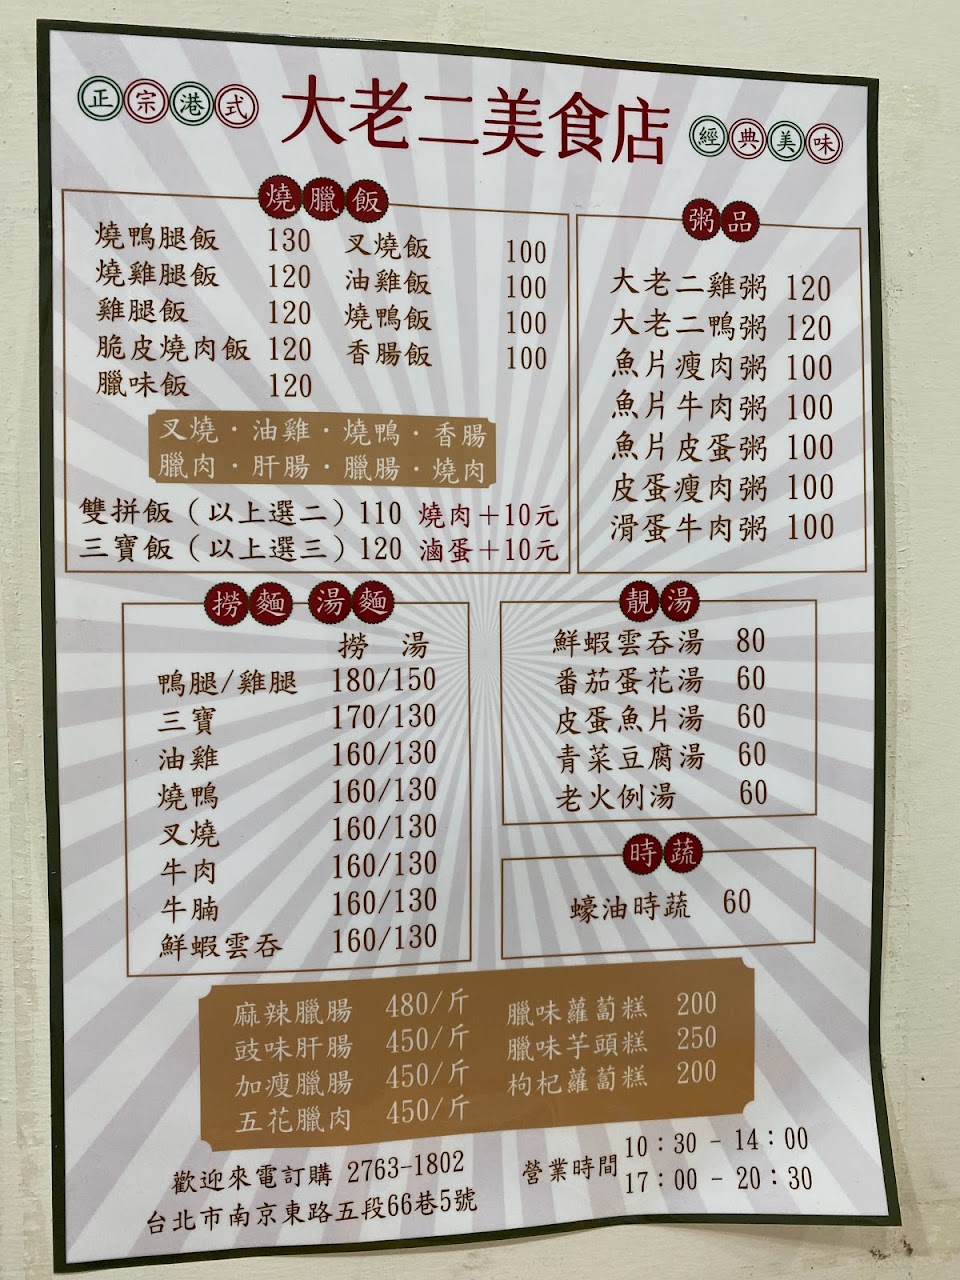 正宗港式 大老二美食店 經典美味
燒臘飯
燒鴨腿飯 130 叉燒飯 100
燒雞腿飯 120 油雞飯 100
雞腿飯 120 燒鴨飯 100
脆皮燒肉飯 120 香腸飯 100
臘味飯 120
叉燒・油雞・燒鴨・香腸
臘肉・肝腸・臘腸・燒肉
雙拼飯（以上選二）110 燒肉＋10元
三寶飯（以上選三）120 滷蛋＋10元
粥品
大老二雞粥 120
大老二鴨粥 120
魚片瘦肉粥 100
魚片牛肉粥 100
魚片皮蛋粥 100
皮蛋瘦肉粥 100
滑蛋牛肉粥 100
撈麵 湯麵
撈 湯
鴨腿/雞腿 180/150
三寶 170/130
油雞 160/130
燒鴨 160/130
叉燒 160/130
牛肉 160/130
牛腩 160/130
鮮蝦雲吞 160/130
靚湯
鮮蝦雲吞湯 80
番茄蛋花湯 60
皮蛋魚片湯 60
青菜豆腐湯 60
老火例湯 60
時蔬
蠔油時蔬 60
麻辣臘腸 480/斤 臘味蘿蔔糕 200
豉味肝腸 450/斤 臘味芋頭糕 250
加瘦臘腸 450/斤 枸杞蘿蔔糕 200
五花臘肉 450/斤
歡迎來電訂購 2763-1802
台北市南京東路五段66巷5號
營業時間 10：30 - 14：00
17：00 - 20：30